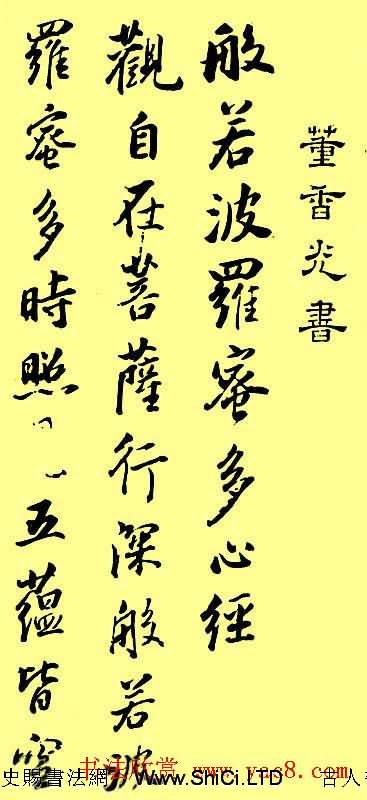 董香光書
般若波羅蜜多心經
觀自在菩薩行深般若波
羅蜜多時照
五蘊皆空
史賜書法網 Www.ShiCi.LTD 古人
书法欣赏 www.yac8.com